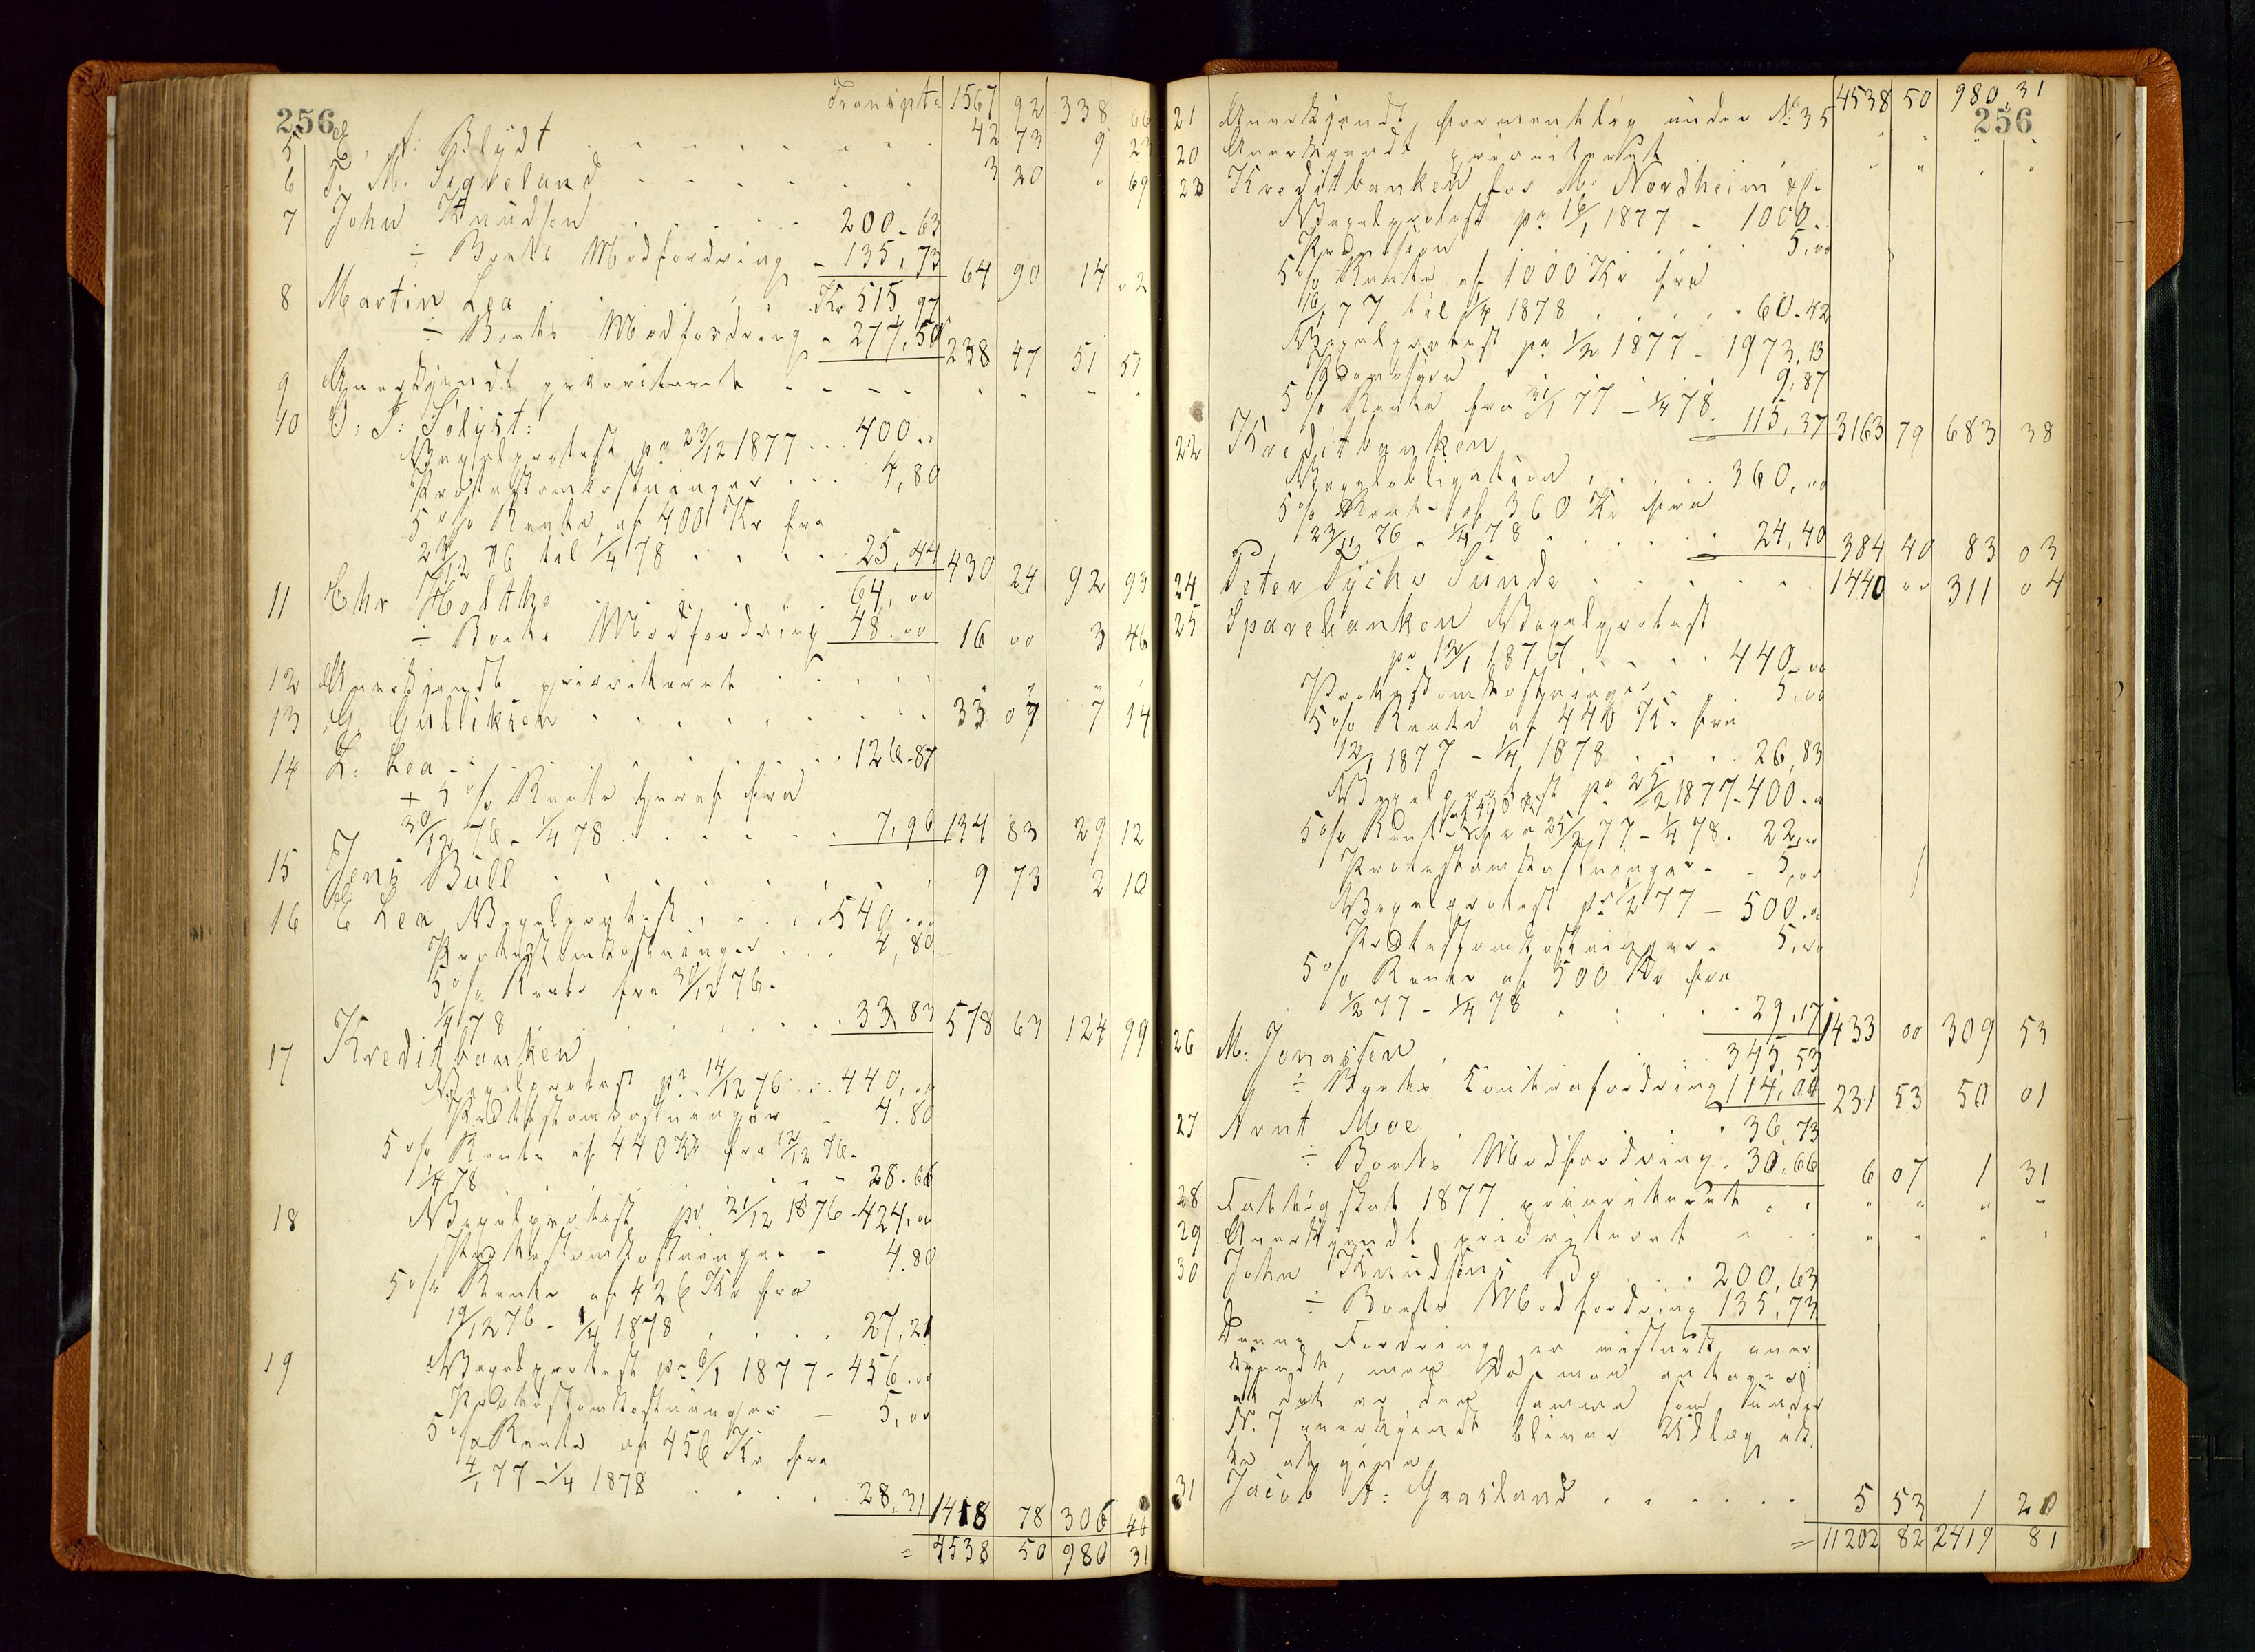 256 Transpt: 1567 92 338 66
5 E. A. Blydt . . . . . . . 42 73 9 23
6 T. M. Sigveland . . . . . . 3 20 " 69
7 John Knudsen . . . . 200-63
÷ Boets Modfordring - 135,73 64 90 14 02
8 Martin Lea . . . . Kr 515 97
÷ Boets Modfordring - 277,50 238 47 51 51
9 Anerkjendt prioriteret - - - - " " " "
10 O. T. Sölyst:
Vexelprotest pr 23/12 1877 . . 400 ..
Protestomkostninger . . . 4,80
5% Rente af 400 Kr fra
23/12 76 til 1/4 78 . . . . . 25,44 430 24 92 93
11 Chr Holthe . . . . . 64,00
÷ Boets Modfordring 48.00 16 00 3 46
12 Anerkjendt prioriteret . . . . . " " " "
13 G. Gulliksen . . . . . . . . 33 07 7 14
14 L. Lea - . . . . . . . . 126-87
+ 5% Rente heraf fra
30/12 76 - 1/4 78 . . . . . . 7,96 134 83 29 12
15 Jens Bull . . . . . . . 9 73 2 10
16 E Lea Vexelprotest . . . . 540.00
Protestomkostninger . . . 4,80
5% Rente fra 30/12 76-
1/4 78 . . . . . . 33 83 578 63 124 99
17 Kreditbanken
Vexelprotest pr 14/12 76 . . 440,00
Protestomkostninger - 4.80
5% Rente af 440 Kr fra 12/12 76-
1/4 78 . . . . . - 28.66
18 Vexelprotest pr 21/12 1876-424,00
Protestomkostninger - 4.80
5% Rente af 426 Kr fra
19/12 76 - 1/4 1878 . . . . 27,21
19 Vexelprotest pr 6/1 1877-456.00
Protestomkostninger - 5,00
5% Rente af 456 Kr fra
4/1 77 - 1/4 1878 . . . . . 28,31 1418 78 306 46
= 4538 50 980 31
21 Anerkjendt formentlig under No 35 4538 50 980,31
256
20 Anerkjendt prioriteret " " " "
23 Kreditbanken for M. Nordheim
Vexelprotest pr 16/1 1877 - 1000..
Provision . . . . . . 5,00
5% Rente af 1000 Kr fra
16/1 77 til 1/4 1878 . . . . . 60-42
Vexelprotest pr 1/2 1877 - 1973,13
Provision . . . . . . 9,87
5% Rente fra 31/1 77 - 1/4 78. 115,37 3163 79 683 38
22 Kreditbanken
Vexelobligation . . . . . 360,00
5% Rente af 360 Kr fra
23/11 76 - 1/4 78 . . . . . . 24,40 384 40 83 03
24 Peter Tycho Sunde . . . . . . 1440 00 311 04
25 Sparebanken Vexelprotest
pr 12/1 1877 . - - . 440-00
Protestomkostninger . . 5,00
5% Rente af 440 Kr fra
12/1 1877 - 1/4 1878 . . . . 26,83
Vexelprotest pr 25/2 1877-400.00
5% Rente fra 25/2 77 - 1/4 78. 22,00
Protestomkostninger - - 5,00
Vexelprotest pr 1/2 77 - 500.00
Protestomkostninger - 5,00
5% Rente af 500 Kr fra
1/2 77 - 1/4 78 . . . . . 29,17 1433 00 309 53
26 M. Jonassen . . . . . 345,53
÷ Boets Contrafordring 114,00 231 53 50 01
27 Arnt Moe . . . . . . 36,73
÷ Boets Modfordring. 30.66 6 07 1 31
28 Fattigskat 1877 prioriteret . . " " " "
29 Anerkjendt prioriteret - . . " " " "
30 John Knudsens Bo . . . 200,63
÷ Boets Modfordring 135,73
Denne Fordring er vistnok aner-
kjendt, men da man antager
at det er den samme som under
N. 7 anerkjendt bliver Udlæg ik-
ke at give
31 Jacob A. Gaasland . . . . . . 5 53 1 20
= 11202 82 2419 81